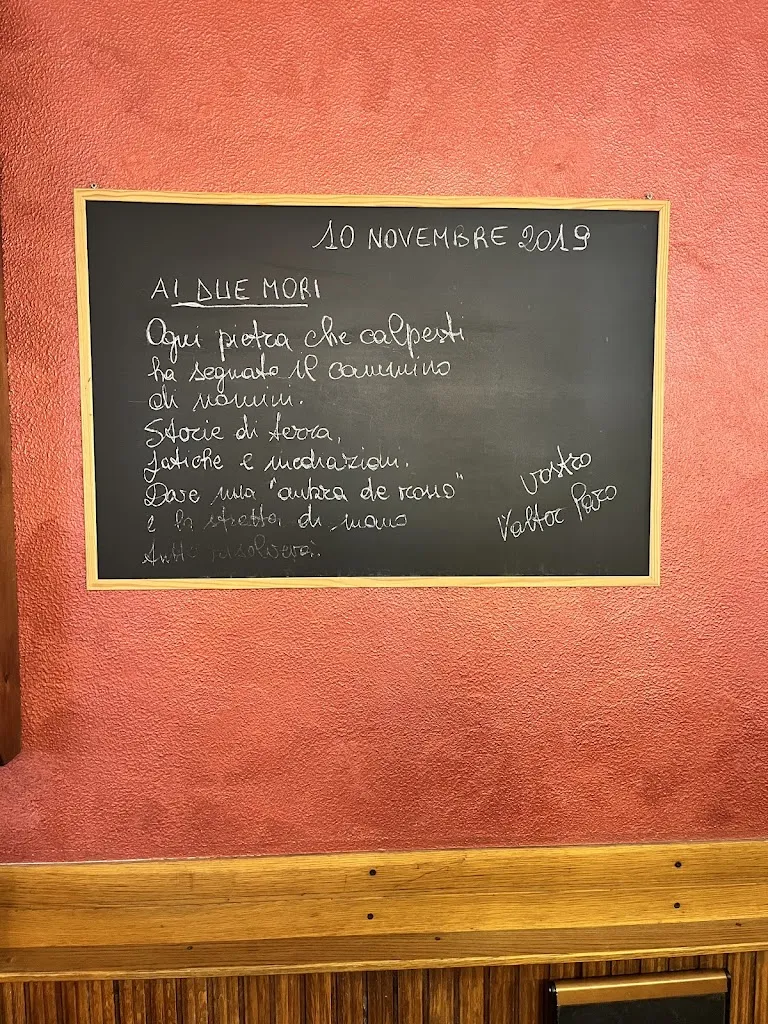 10 NOVEMBRE 2019
AI DUE MORI
Ogni pietra che calpesti
ha segnato il cammino
di uomini.
Storie di terra,
fatiche e mediazioni.
Dare una "ombra de rosso"
e la stretta di mano
tutto risolverà.
vostro
Valter Pavo